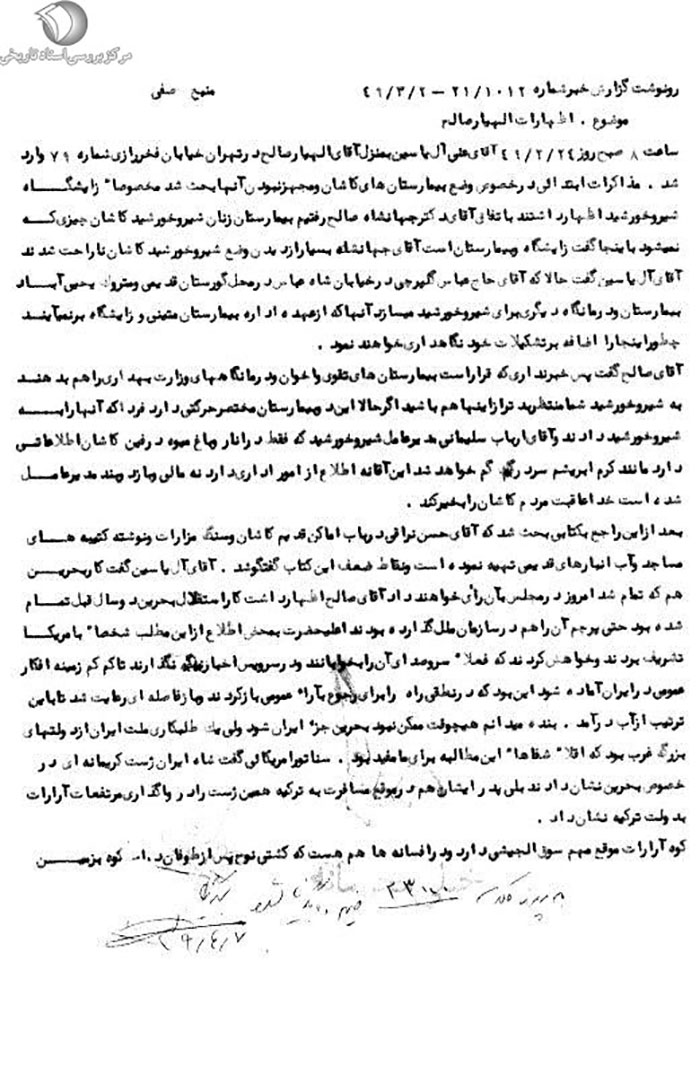 مرکز بررسی اسناد تاریخی
رونوشت گزارش خبر شماره ۲۱/۱۰۱۲ – ۴۹/۳/۲ منبع صفی
موضوع . اظهارات الهیار صالح
ساعت ۸ صبح روز ۴۹/۲/۲۴ آقای علی آل یاسین بمنزل آقای الهیار صالح در تهران خیابان فخر رازی شماره ۷۹ وارد
شد . مذاکرات ابتدائی در خصوص وضع بیمارستان های کاشان و مجهز نبودن آنها بحث شد مخصوصا" زایشگاه
شیر و خورشید اظهار داشتند با تفاق آقای دکتر جهانشاه صالح رفتیم بیمارستان زنان شیر و خورشید کاشان چیزی که
نمیشود باینجا گفت زایشگاه و بیمارستان است آقای جهانشاه بسیار از دیدن وضع شیر و خورشید کاشان ناراحت شدند
آقای آل یاسین گفت حالا که آقای حاج عباس گلبرچی در خیابان شاه عباس در محل گورستان قدیمی و متروک یحیی آباد
بیمارستان و درمانگاه دیگری برای شیر و خورشید میسازد آنها که از عهده اداره بیمارستان متینی و زایشگاه برنمیآیند
چطور اینجا را اضافه بر تشکیلات خود نگاهداری خواهند نمود .
آقای صالح گفت پس خبر نداری که قرار است بیمارستان های نقوی و اخوان و درمانگاههای وزارت بهداری را هم بدهند
به شیر و خورشید شما منتظر بدتر از اینها هم باشید اگر حالا این دو بیمارستان مختصر حرکتی دارد فردا که آنها را به
شیر و خورشید دادند و آقای ارباب سلیمانی مدیر عامل شیر و خورشید که فقط در انار و باغ میوه در فین کاشان اطلاعاتی
دارد مانند کرم ابریشم سردرگم گم خواهد شد این آقا نه اطلاع از امور اداری دارد نه مالی و بازد وبند مدیر عامل
شده است خدا عاقبت مردم کاشان را بخیر کند .
بعد از این راجع بکتابی بحث شد که آقای حسن نراقی در باب اماکن قدیم کاشان و سنگ مزارات و نوشته کتیبه های
مساجد و آب انبارهای قدیمی تهیه نموده است و نقاط ضعف این کتاب گفتگو شد . آقای آل یاسین گفت کار بحرین
هم که تمام شد امروز در مجلس بآن رأی خواهند داد آقای صالح اظهار داشت کار استقلال بحرین دو سال قبل تمام
شده بود حتی پرچم آن را هم در سازمان ملل گذارده بودند اعلیحضرت بمحض اطلاع از این مطلب شخصا" بامریکا
تشریف بردند و خواهش کردند که فعلا" سر و صدای آن را بخوابانند و در سرویس اخبار نگذارند تا کم کم زمینه افکار
عمومی در ایران آماده شود این بود که در نطقی راه را برای رجوع بآراء عمومی باز کردند و باز فاصله ای رعایت شد تا باین
ترتیب از آب در آمد . بنده میدانم هیچوقت ممکن نبود بحرین جزء ایران شود ولی یک طلبکاری ملت ایران از دولتهای
بزرگ غرب بود که اقلا" شفاها" این مطالبه برای ما مفید بود . سناتور امریکائی گفت شاه ایران ژست کریمانه ای در
خصوص بحرین نشان دادند بلی پدر ایشان هم در موقع مسافرت به ترکیه همین ژست را در واگذاری مرتفعات آرارات
بدولت ترکیه نشان داد .
کوه آرارات موقع مهم سوق الجیشی دارد و در افسانه ها هم هست که کشتی نوح پس از طوفان در این کوه بزمین
به پرونده
۴۹/۴/۷